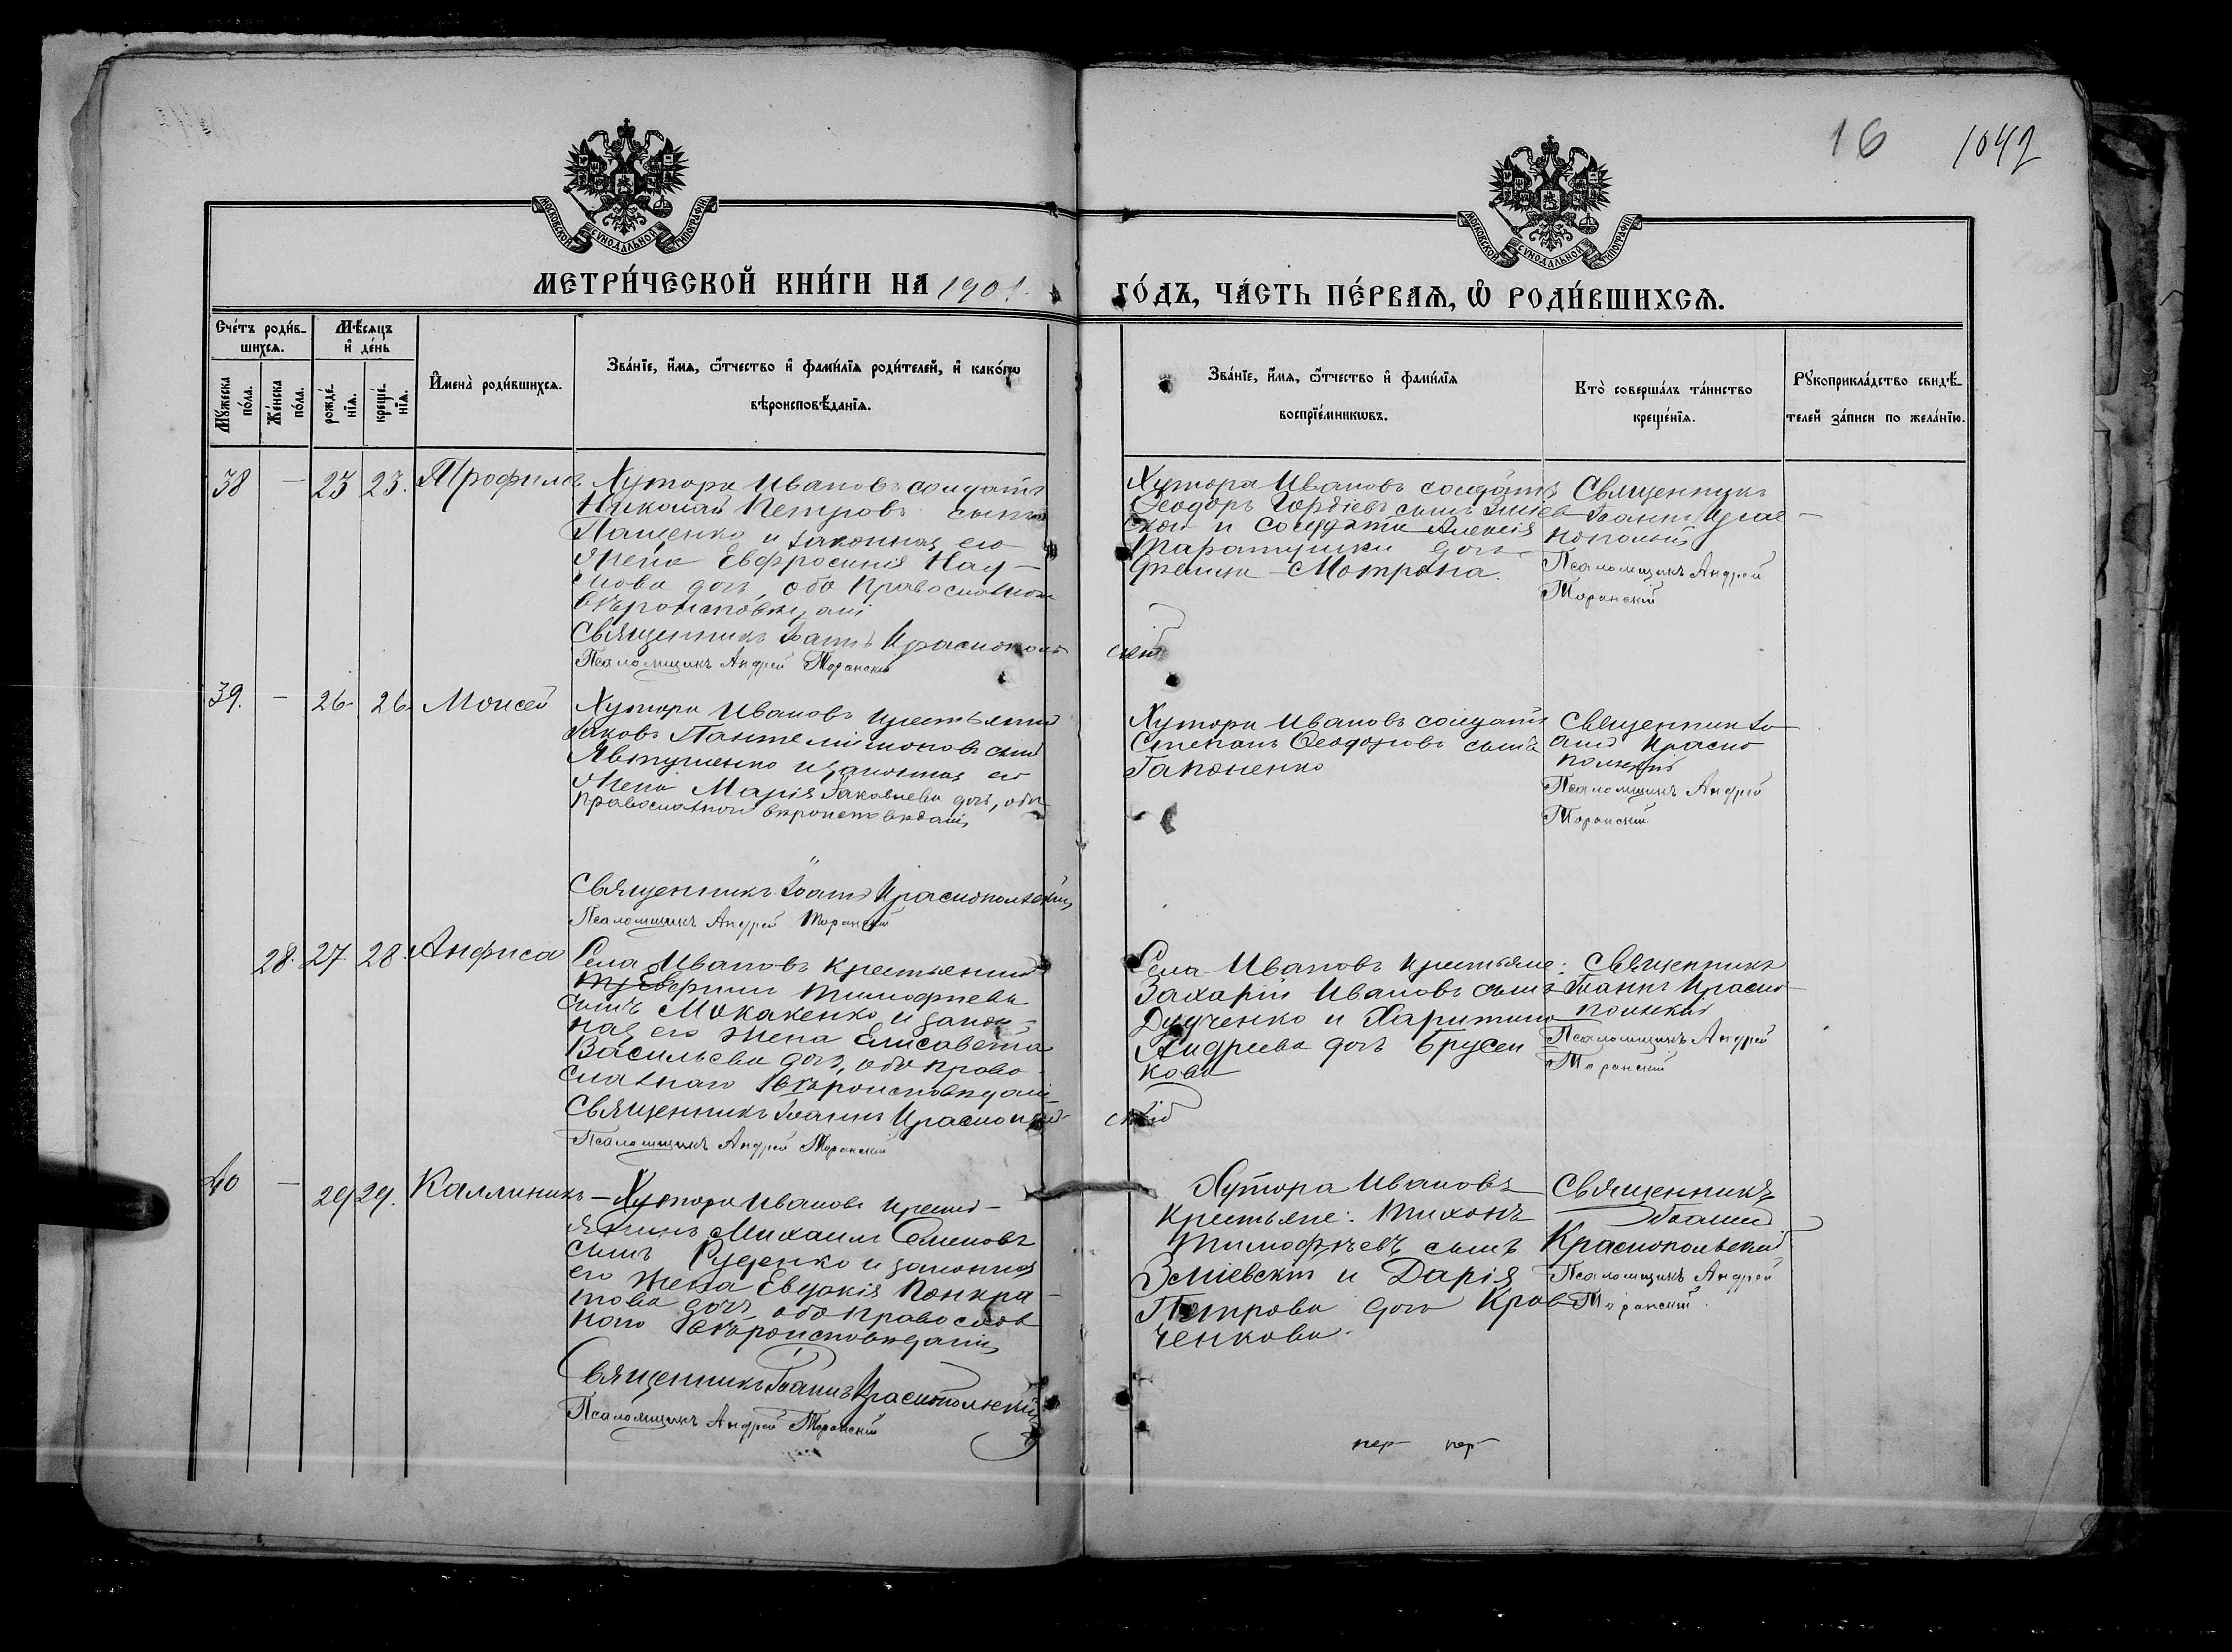 16 1042
МОСКОВСКОЙ СУНОДАЛЬНОЙ ТИПОГРАФІИ
МОСКОВСКОЙ СУНОДАЛЬНОЙ ТИПОГРАФІИ
МЕТРИ́ЧЕСКОЙ КНИ́ГИ НА 1901. ГО́ДЪ, ЧА́СТЬ ПЕ́РВАѦ, Ѽ РОДИ́ВШИХСѦ.
Сче́тъ роди́в-
шихсѧ.
Мꙋ́жеска по́ла.
Же́нска по́ла.
Мѣ́сѧцъ
и҆ де́нь
рожде́-
нїѧ.
креще́-
нїѧ.
И҆мена̀ роди́вшихсѧ.
Зва́нїе, и҆́мѧ, ѻ҆́тчество и҆ фами́лїѧ роди́телей, и҆ како́гѡ
вѣроисповѣ́данїѧ.
Зва́нїе, и҆́мѧ, ѻ҆́тчество и҆ фами́лїѧ
воспрїе́мникѡвъ.
Кто̀ соверша́лъ та́инство
креще́нїѧ.
Рꙋкоприкла́дство свидѣ́-
телей за́писи по жела́нїю.
38 — 23 23. Трофимъ
Хутора Ивановъ солдатъ
Николай Петровъ сынъ
Пащенко и законная его
жена Евфросинія Нау-
мова дочь, обо православнаго
вѣроисповѣданія
Священникъ Іоаннъ Краснополь
скій
Псаломщикъ Андрей Торанскій
Хутора Ивановъ солдатъ
Ѳеодоръ Гордіевъ сынъ Зміев
скій и солдата Алексія
Таратушки дочь
дѣвица Мотрона.
Священникъ
Іоаннъ Крас-
нопольскій
Псаломщикъ Андрей
Торанскій
39. — 26 26 Моисей
Хутора Ивановъ крестьянинъ
Іаковъ Пантелимоновъ сынъ
Явтушенко и законная его
жена Марія Іаковлева дочь, обо
православнаго вѣроисповѣданія
Священникъ Іоаннъ Краснопольскій
Псаломщикъ Андрей Торанскій
Хутора Ивановъ солдатъ
Степанъ Ѳеодоровъ сынъ
Гапоненко
Священникъ Іо
аннъ Красно
польскій
Псаломщикъ Андрей
Торанскій
28. 27 28 Анфиса
Села Ивановъ крестьянинъ
Тимофіевъ
сынъ Макаренко и закон-
ная его жена Елисавета
Васильева дочь, обо право-
славнаго вѣроисповѣданія
Священникъ Іоаннъ Краснополь
скій
Псаломщикъ Андрей Торанскій
Села Ивановъ крестьяне:
Захарій Ивановъ сынъ
Дудченко и Харитина
Андреева дочь Брусен
кова
Священникъ
Іоаннъ Красно
польскій
Псаломщикъ Андрей
Торанскій
40 — 29 29. Каллиникъ
Хутора Ивановъ крест-
янинъ Михаилъ Семеновъ
сынъ Руденко и законная
его жена Евдокія Понкра-
това дочь, обо православ
наго вѣроисповѣданія
Священникъ Іоаннъ Краснопольскій
Псаломщикъ Андрей Торанскій
Хутора Ивановъ
крестьяне: Тихонъ
Тимофѣевъ сынъ
Зміевскій и Дарія
Петрова дочь Крав
ченкова.
Священникъ
Іоаннъ
Краснопольскій
Псаломщикъ Андрей
Торанскій.